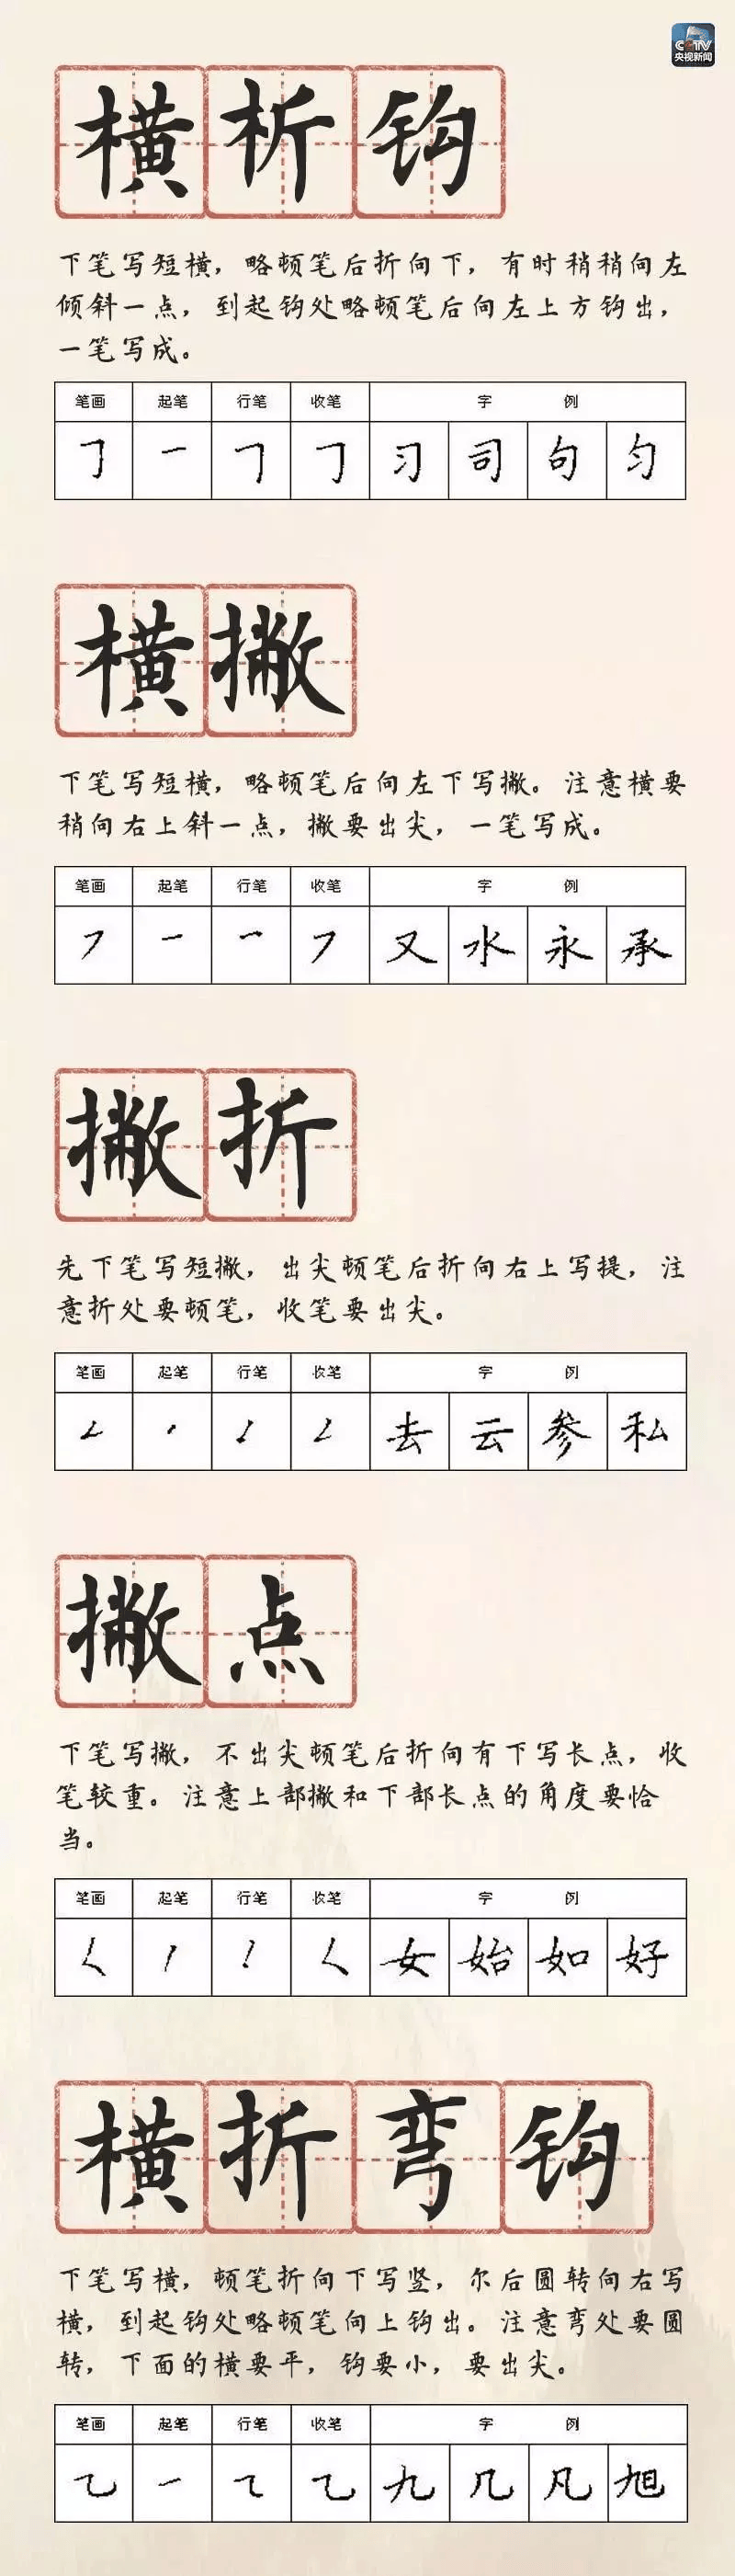 CCTV
央视新闻
横析钩
下笔写短横，略顿笔后折向下，有时稍稍向左
倾斜一点，到起钩处略顿笔后向左上方钩出，
一笔写成。
笔画 起笔 行笔 收笔 字 例
㇆ 一 ㇆ ㇆ 习 司 句 匀
横撇
下笔写短横，略顿笔后向左下写撇。注意横要
稍向右上斜一点，撇要出尖，一笔写成。
笔画 起笔 行笔 收笔 字 例
㇇ 一 ㇇ ㇇ 又 水 永 承
撇折
先下笔写短撇，出尖顿笔后折向右上写提，注
意折处要顿笔，收笔要出尖。
笔画 起笔 行笔 收笔 字 例
㇜ 丶 ㇜ ㇜ 去 云 参 私
撇点
下笔写撇，不出尖顿笔后折向有下写长点，收
笔较重。注意上部撇和下部长点的角度要恰
当。
笔画 起笔 行笔 收笔 字 例
㇛ 丿 ㇛ ㇛ 女 始 如 好
横折弯钩
下笔写横，顿笔折向下写竖，尔后圆转向右写
横，到起钩处略顿笔向上钩出。注意弯处要圆
转，下面的横要平，钩要小，要出尖。
笔画 起笔 行笔 收笔 字 例
㇈ 一 ㇈ ㇈ 九 几 凡 旭